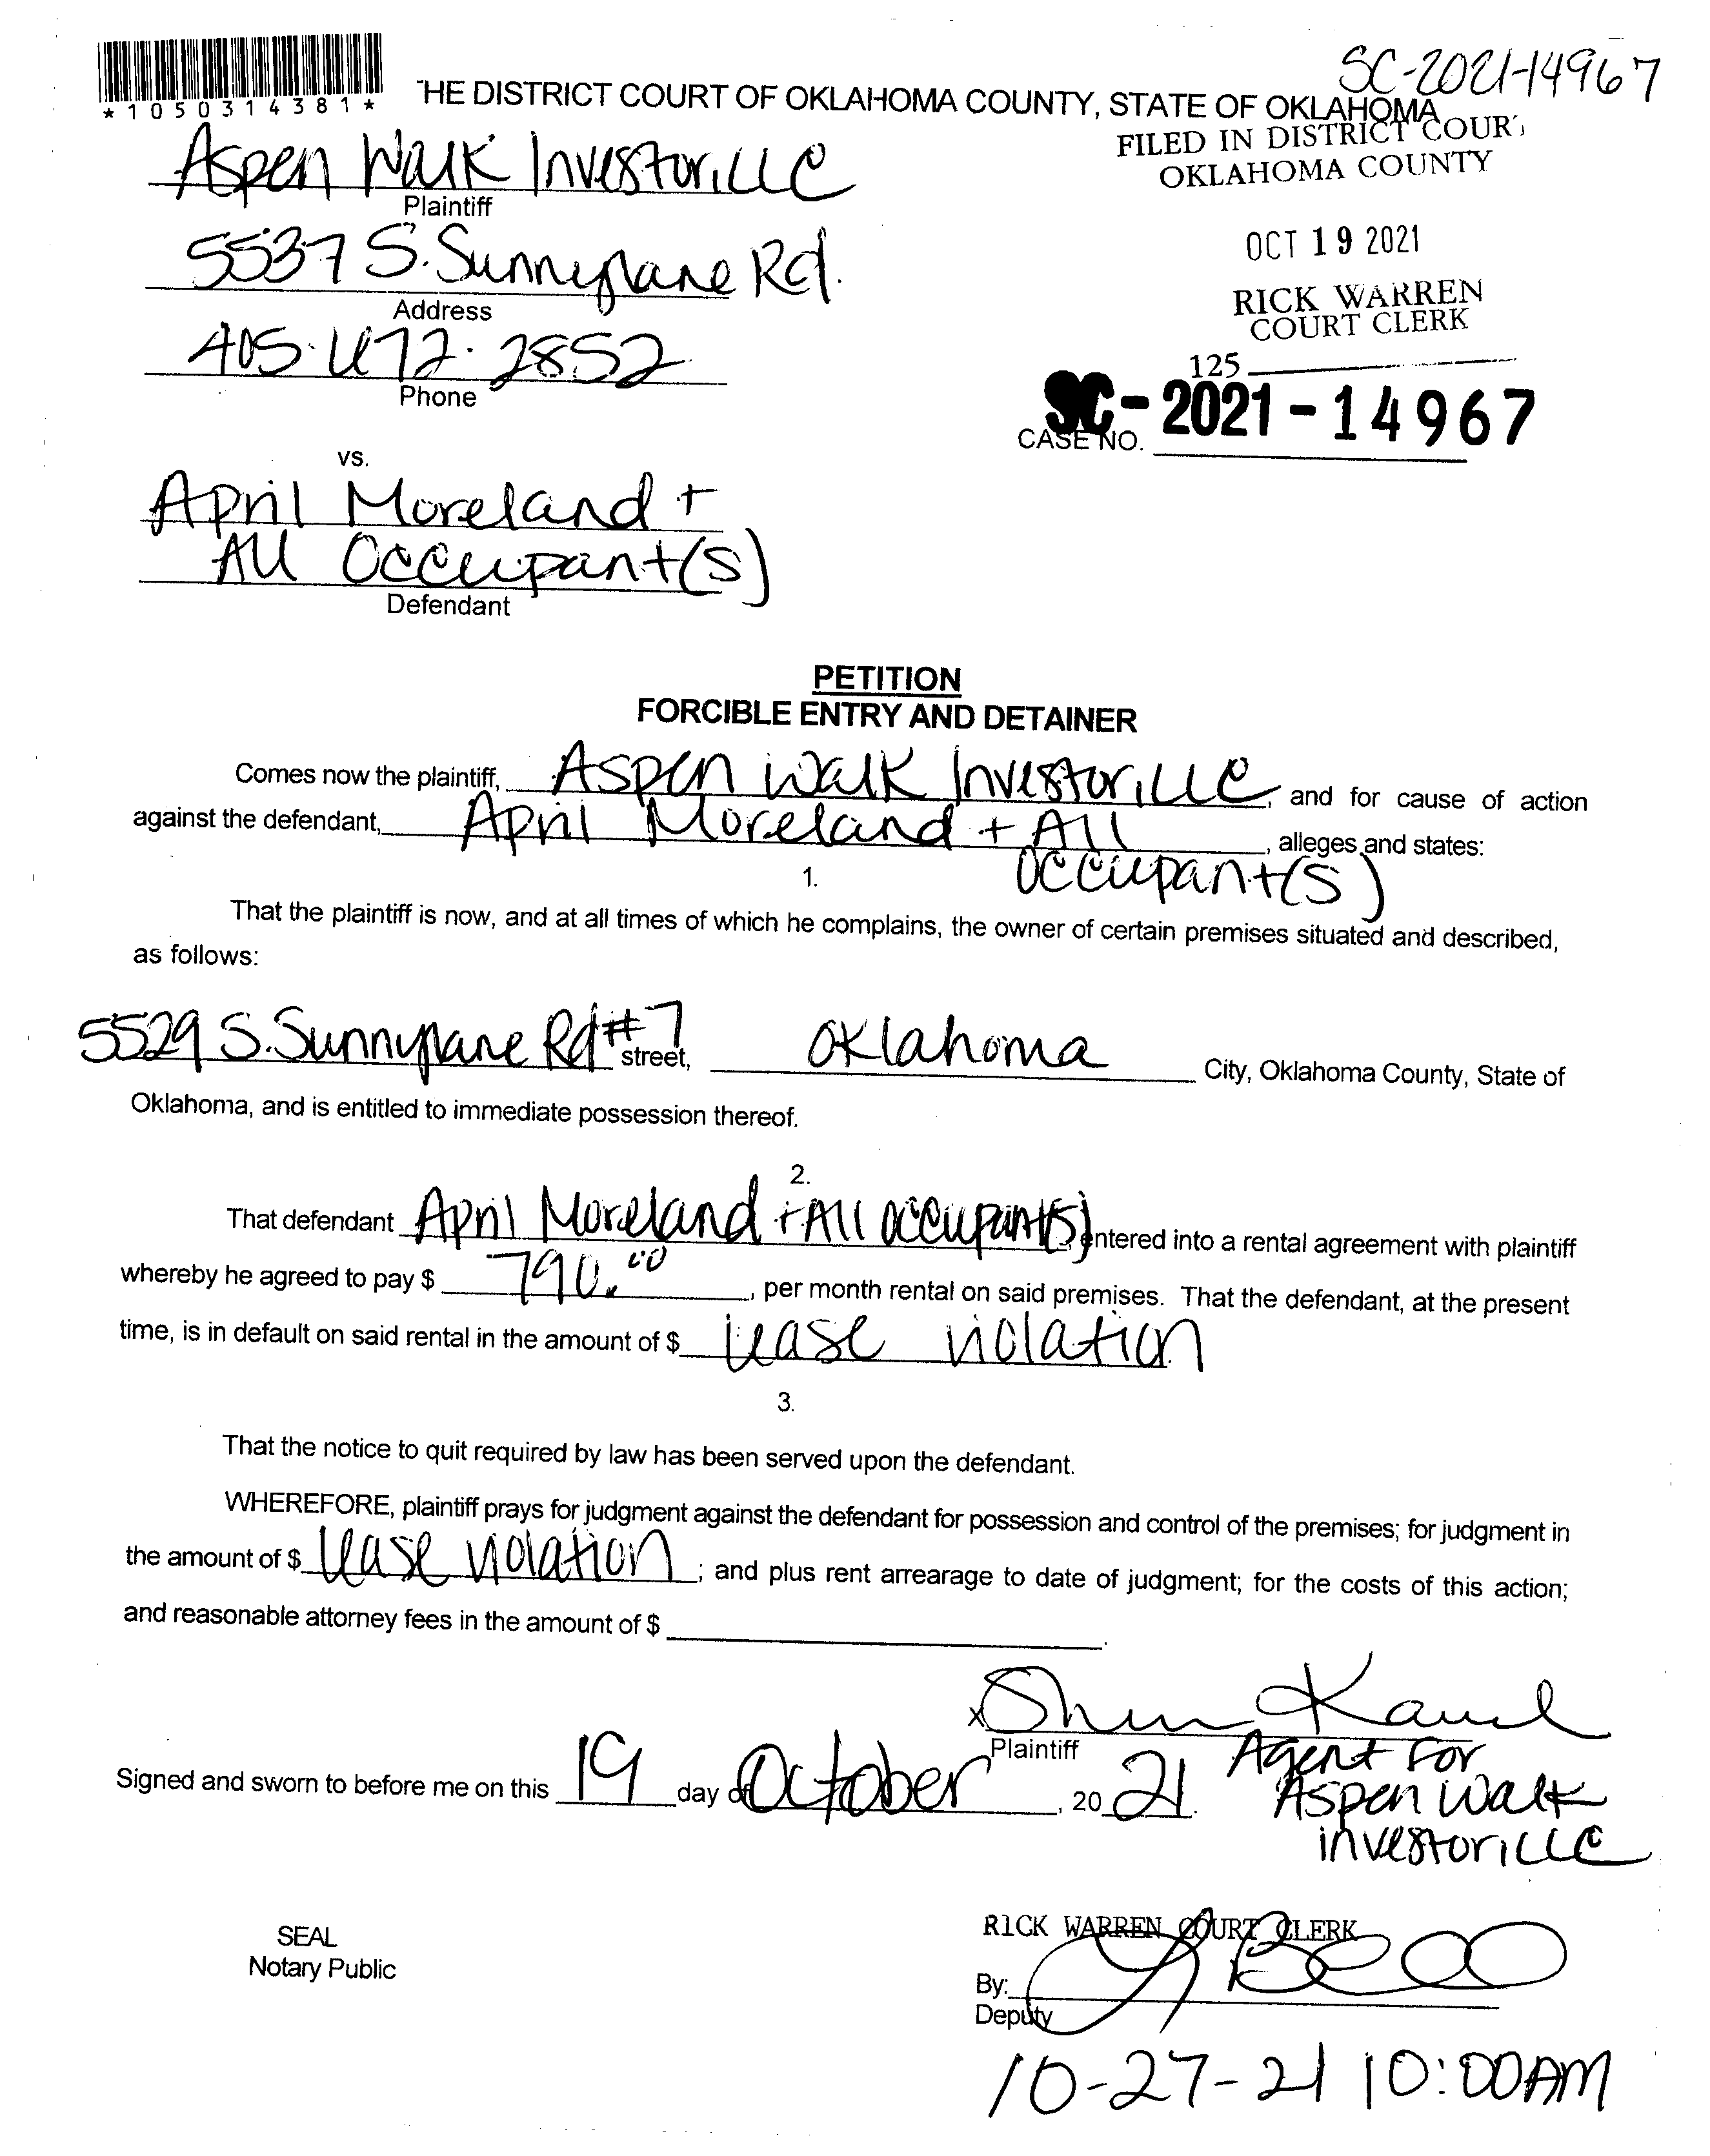 SC-2021-14967
*1050314381*
THE DISTRICT COURT OF OKLAHOMA COUNTY, STATE OF OKLAHOMA
FILED IN DISTRICT COURT
OKLAHOMA COUNTY
Aspen Walk Investor, LLC
Plaintiff
5537 S. Sunnylane Rd.
Address
OCT 19 2021
RICK WARREN
COURT CLERK
405. 672. 2852
Phone
125
SC-2021-14967
CASE NO.
vs.
April Moreland +
All Occupant(s)
Defendant
PETITION
FORCIBLE ENTRY AND DETAINER
Comes now the plaintiff, Aspen Walk Investor, LLC, and for cause of action
against the defendant, April Moreland + All Occupant(s), alleges and states:
1.
That the plaintiff is now, and at all times of which he complains, the owner of certain premises situated and described,
as follows:
5529 S. Sunnylane Rd #7 street, Oklahoma City, Oklahoma County, State of
Oklahoma, and is entitled to immediate possession thereof.
2.
That defendant April Moreland + All Occupant(s), entered into a rental agreement with plaintiff
whereby he agreed to pay $ 790.00, per month rental on said premises. That the defendant, at the present
time, is in default on said rental in the amount of $ lease violation
3.
That the notice to quit required by law has been served upon the defendant.
WHEREFORE, plaintiff prays for judgment against the defendant for possession and control of the premises; for judgment in
the amount of $ lease violation; and plus rent arrearage to date of judgment; for the costs of this action;
and reasonable attorney fees in the amount of $
X
Plaintiff
Agent For
Aspen Walk
investor, LLC
Signed and sworn to before me on this 19 day of October, 2021.
SEAL
Notary Public
RICK WARREN COURT CLERK
By:
Deputy
10-27-21 10:00AM